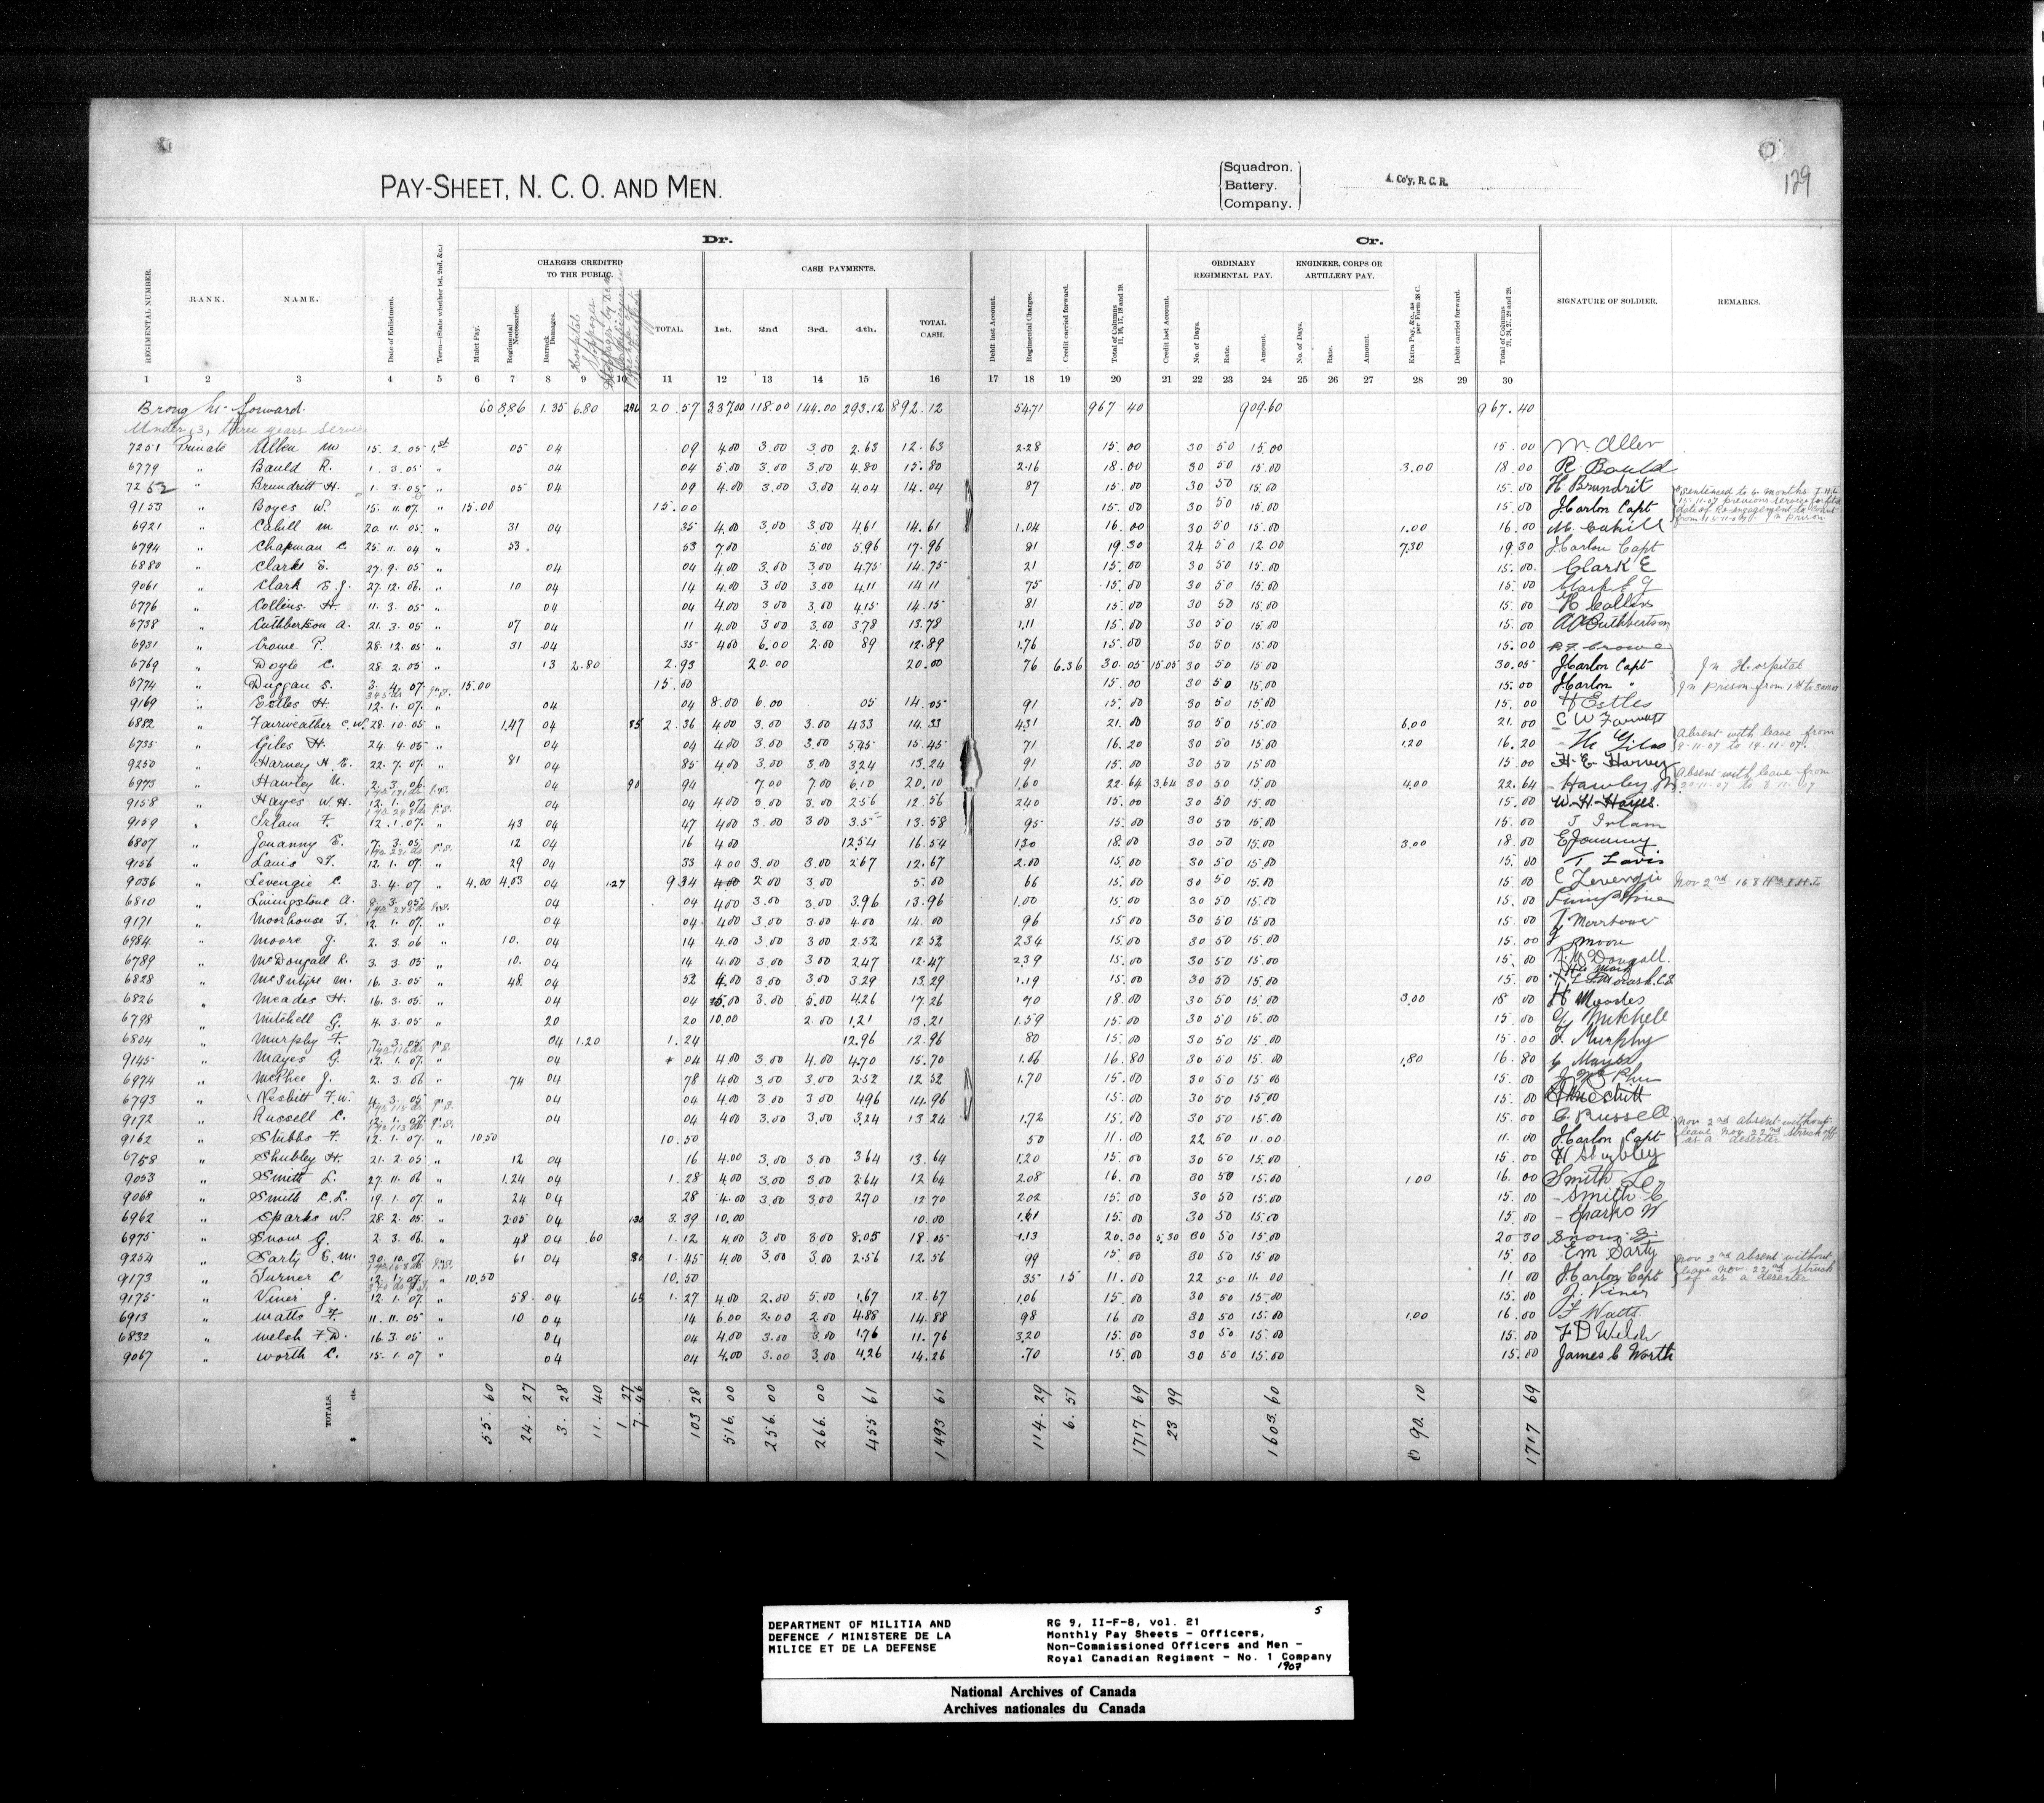 129
PAY-SHEET, N. C. O. AND MEN.
Squadron.
Battery.
Company.
A. Co'y, R. C. R.
Dr.
Cr.
CHARGES CREDITED TO THE PUBLIC.
CASH PAYMENTS.
ORDINARY REGIMENTAL PAY.
ENGINEER, CORPS OR ARTILLERY PAY.
REGIMENTAL NUMBER. RANK. NAME. Date of Enlistment. Term—(State whether 1st, 2nd, &c.) Mulct Pay. Regimental Necessaries. Barrack Damages. Hospital Stoppages TOTAL. 1st. 2nd 3rd. 4th. TOTAL CASH. Debit last Account. Regimental Charges. Credit carried forward. Total of Columns 11, 16, 17, 18 and 19. Credit last Account. No. of Days. Rate. Amount. No. of Days. Rate. Amount. Extra Pay, &c., as per Form 38 C. Debit carried forward. Total of Columns 21, 24, 27, 28 and 29. SIGNATURE OF SOLDIER. REMARKS.
1 2 3 4 5 6 7 8 9 10 11 12 13 14 15 16 17 18 19 20 21 22 23 24 25 26 27 28 29 30
Brong ht forward. 60 8.86 1.35 6.80 296 20.57 337.00 118.00 144.00 293.12 892.12 54.71 967 40 909.60 967.40
Under 3, three years service
7251 Private Allen M 15. 2. 05 1st 05 04 09 4.00 3.00 3.00 2.63 12.63 2.28 15.00 30 50 15.00 15.00 M. Allen
6779 " Bauld R. 1. 3. 05 " 04 04 5.00 3.00 3.00 4.80 15.80 2.16 18.00 30 50 15.00 3.00 18.00 R. Bauld
7252 " Brundritt H. 1. 3. 05 " 05 04 09 4.00 3.00 3.00 4.04 14.04 87 15.00 30 50 15.00 15.00 H. Brundrit
9153 " Boyes W. 15. 11. 07. " 15.00 15.00 15.00 30 50 15.00 15.00 J Carlon Capt Sentenced to 6 months I.H.L. 15-11-07 previous service forfeited date of Re-engagement to count from 15-11-07 In prison
6921 " Cahill M 20. 11. 05 " 31 04 35 4.00 3.00 3.00 4.61 14.61 1.04 16.00 30 50 15.00 1.00 16.00 M. Cahill
6794 " Chapman C. 25. 11. 04 " 53 53 7.00 5.00 5.96 17.96 81 19.30 24 50 12.00 7.30 19.30 J Carlon Capt
6880 " Clark E. 27. 9. 05 " 04 04 4.00 3.00 3.00 4.75 14.75 21 15.00 30 50 15.00 15.00 Clark E
9061 " Clark E. J. 27. 12. 06. " 10 04 14 4.00 3.00 3.00 4.11 14.11 75 15.00 30 50 15.00 15.00 Clark E J
6776 " Collins H. 11. 3. 05 " 04 04 4.00 3.00 3.00 4.15 14.15 81 15.00 30 50 15.00 15.00 H Collins
6738 " Cuthbertson A. 21. 3. 05 " 07 04 11 4.00 3.00 3.00 3.78 13.78 1.11 15.00 30 50 15.00 15.00 A Cuthbertson
6931 " Crowe P. 28. 12. 05 " 31 04 35 4.00 6.00 2.00 89 12.89 1.76 15.00 30 50 15.00 15.00 P. Crowe
6769 " Doyle C. 28. 2. 05 " 13 2.80 2.93 20.00 20.00 76 6.36 30.05 15.05 30 50 15.00 30.05 J Carlon Capt In Hospital
6774 " Duggan S. 3. 4. 07. 15.00 15.00 15.00 30 50 15.00 15.00 J Carlon " In prison from 1st to 30-11-07
9169 " Estles H. 12. 1. 07. " 04 04 8.00 6.00 05 14.05 91 15.00 30 50 15.00 15.00 H Estles
6882 " Fairweather C. W. 28. 10. 05 " 1.47 04 85 2.36 4.00 3.00 3.00 4.33 14.33 4.31 21.00 30 50 15.00 6.00 21.00
6735 " Giles H. 24. 4. 05 " 04 04 4.00 3.00 3.00 5.45 15.45 71 16.20 30 50 15.00 1.20 16.20 H Giles Absent with leave from 9-11-07 to 19-11-07.
9250 " Harvey H. E. 22. 7. 07. " 81 04 85 4.00 3.00 3.00 3.24 13.24 91 15.00 30 50 15.00 15.00 H. E. Harvey
6973 " Hawley N. 2. 3. 06 04 90 94 7.00 7.00 6.10 20.10 1.60 22.64 3.64 30 50 15.00 4.00 22.64 Hawley N Absent with leave from
9158 " Hayes W. H. 12. 1. 07. 04 04 4.00 3.00 3.00 2.56 12.56 2.40 15.00 30 50 15.00 15.00 W. H. Hayes.
9159 " Irlam F. 12. 1. 07. " 43 04 47 4.00 3.00 3.00 3.5 13.58 95 15.00 30 50 15.00 15.00 F Irlam
6807 " Jouanny E. 7. 3. 05 12 04 16 4.00 12.54 16.54 1.30 18.00 30 50 15.00 3.00 18.00 E Jouanny
9156 " Lavis T. 12. 1. 07. " 29 04 33 4.00 3.00 3.00 2.67 12.67 2.00 15.00 30 50 15.00 15.00 T Lavis
9036 " Levengie C. 3. 4. 07 " 4.00 4.03 04 1.27 9.34 4.00 2.00 3.00 5.00 66 15.00 30 50 15.00 15.00 C Levengie Nov 2nd 168 Hrs I.H.L.
6810 " Livingstone A. 8. 3. 05 04 04 4.00 3.00 3.00 3.96 13.96 1.00 15.00 30 50 15.00 15.00
9171 " Moorhouse T. 12. 1. 07. " 04 04 4.00 3.00 3.00 4.00 14.00 96 15.00 30 50 15.00 15.00
6984 " Moore J. 2. 3. 06 " 10. 04 14 4.00 3.00 3.00 2.52 12.52 2.34 15.00 30 50 15.00 15.00 J Moore
6789 " McDougall R. 3. 3. 05 " 10. 04 14 4.00 3.00 3.00 2.47 12.47 2.39 15.00 30 50 15.00 15.00 R McDougall.
6828 " McIntyre M. 16. 3. 05 " 48 04 52 4.00 3.00 3.00 3.29 13.29 1.19 15.00 30 50 15.00 15.00 His mark
6826 " Meades H. 16. 3. 05. " 04 04 5.00 3.00 5.00 4.26 17.26 70 18.00 30 50 15.00 3.00 18.00 H Meades
6798 " Mitchell G. 4. 3. 05 " 20 20 10.00 2.00 1.21 13.21 1.59 15.00 30 50 15.00 15.00 G Mitchell
6804 " Murphy F. 7. 3. 05 04 1.20 1.24 12.96 12.96 80 15.00 30 50 15.00 15.00 F. Murphy
9145 " Mayes G. 12. 1. 07. " 04 4.00 3.00 4.00 4.70 15.70 1.06 16.80 30 50 15.00 1.80 16.80 G Mayes
6974 " McPhee J. 2. 3. 06 " 74 04 78 4.00 3.00 3.00 2.52 12.52 1.70 15.00 30 50 15.00 15.00 J McPhee
6793 " Nesbitt F. W. 4. 3. 05 04 04 4.00 3.00 3.00 4.96 14.96 15.00 30 50 15.00 15.00
9172 " Russell C. 12. 1. 07. 04 04 4.00 3.00 3.00 3.24 13.24 1.72 15.00 30 50 15.00 15.00 C. Russell
9162 " Stubbs F. 12. 1. 07. " 10.50 10.50 50 11.00 22 50 11.00 11.00 J Carlon Capt Nov 2nd absent without leave Nov 22nd struck off as a deserter
6758 " Shubley H. 21. 2. 05 " 12 04 16 4.00 3.00 3.00 3.64 13.64 1.20 15.00 30 50 15.00 15.00 H Shubley
9053 " Smith L. 27. 11. 06 " 1.24 04 1.28 4.00 3.00 3.00 2.64 12.64 2.08 16.00 30 50 15.00 1.00 16.00 Smith L
9068 " Smith C. L. 19. 1. 07. " 24 04 28 4.00 3.00 3.00 2.70 12.70 2.02 15.00 30 50 15.00 15.00 Smith C
6962 " Sparks W. 28. 2. 05. " 2.05 04 1.30 3.39 10.00 10.00 1.61 15.00 30 50 15.00 15.00 Sparks W
6975 " Snow G. 2. 3. 06. " 48 04 .60 1.12 4.00 3.00 3.00 8.05 18.05 1.13 20.30 5.30 30 50 15.00 20 30 Snow G.
9254 " Sarty E. M. 30. 10. 07 61 04 80 1.45 4.00 3.00 3.00 2.56 12.56 99 15.00 30 50 15.00 15.00 E M Sarty
9173 " Turner C 12. 1. 07. " 10.50 10.50 35 15 11.00 22 50 11.00 11.00 J. Carlon Capt Nov 2nd absent without leave Nov 22nd struck off as a deserter
9175 " Viner J. 12. 1. 07 " 58 04 65 1.27 4.00 2.00 5.00 1.67 12.67 1.06 15.00 30 50 15.00 15.00 J. Viner
6913 " Watts F. 11. 11. 05 " 10 04 14 6.00 2.00 2.00 4.88 14.88 98 16.00 30 50 15.00 1.00 16.00 F Watts.
6832 " Welsh F. D. 16. 3. 05 " 04 04 4.00 3.00 3.00 1.76 11.76 3.20 15.00 30 50 15.00 15.00 F D Welsh
9067 " Worth C. 15. 1. 07 " 04 04 4.00 3.00 3.00 4.26 14.26 .70 15.00 30 50 15.00 15.00 James C Worth
TOTALS. $ cts. 55.60 24.27 3.28 11.40 1.27 7.46 103 28 516.00 256.00 266.00 455 61 1493 61 114.29 6.51 1717.69 23 99 1603.60 90.10 1717 69
DEPARTMENT OF MILITIA AND DEFENCE / MINISTERE DE LA MILICE ET DE LA DEFENSE
5
RG 9, II-F-8, vol. 21
Monthly Pay Sheets - Officers,
Non-Commissioned Officers and Men -
Royal Canadian Regiment - No. 1 Company
1907
National Archives of Canada
Archives nationales du Canada